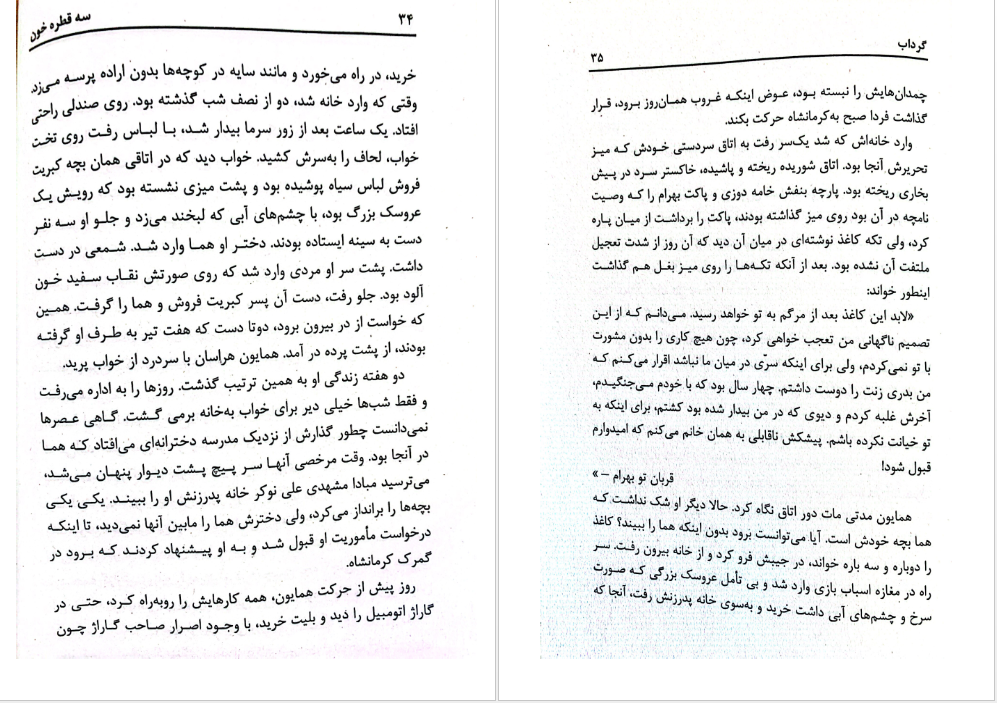 ۳۴
سه قطره خون
خرید، در راه می‌خورد و مانند سایه در کوچه‌ها بدون اراده پرسه می‌زد.
وقتی که وارد خانه شد، دو از نصف شب گذشته بود. روی صندلی راحتی
افتاد. یک ساعت بعد از زور سرما بیدار شد، با لباس رفت روی تخت
خواب، لحاف را به‌سرش کشید. خواب دید که در اتاقی همان بچه کبریت
فروش لباس سیاه پوشیده بود و پشت میزی نشسته بود که رویش یک
عروسک بزرگ بود، با چشم‌های آبی که لبخند می‌زد و جلو او سه نفر
دست به سینه ایستاده بودند. دختر او هما وارد شد. شمعی در دست
داشت. پشت سر او مردی وارد شد که روی صورتش نقاب سفید خون
آلود بود. جلو رفت، دست آن پسر کبریت فروش و هما را گرفت. همین
که خواست از در بیرون برود، دوتا دست که هفت تیر به طرف او گرفته
بودند، از پشت پرده در آمد. همایون هراسان با سردرد از خواب پرید.
دو هفته زندگی او به همین ترتیب گذشت. روزها را به اداره می‌رفت
و فقط شب‌ها خیلی دیر برای خواب به‌خانه برمی گشت. گاهی عصرها
نمی‌دانست چطور گذارش از نزدیک مدرسه دخترانه‌ای می‌افتاد که هما
در آنجا بود. وقت مرخصی آنها سر پیچ پشت دیوار پنهان می‌شد،
می‌ترسید مبادا مشهدی علی نوکر خانه پدرزنش او را ببیند. یکی یکی
بچه‌ها را برانداز می‌کرد، ولی دخترش هما را مابین آنها نمی‌دید، تا اینکه
درخواست مأموریت او قبول شد و به او پیشنهاد کردند که برود در
گمرک کرمانشاه.
روز پیش از حرکت همایون، همه کارهایش را روبه‌راه کرد، حتی در
گاراژ اتومبیل را دید و بلیت خرید، با وجود اصرار صاحب گاراژ چون
گرداب
۳۵
چمدان‌هایش را نبسته بود، عوض اینکه غروب همان‌روز برود، قرار
گذاشت فردا صبح به‌کرمانشاه حرکت بکند.
وارد خانه‌اش که شد یک‌سر رفت به اتاق سردستی خودش که میز
تحریرش آنجا بود. اتاق شوریده ریخته و پاشیده، خاکستر سرد در پیش
بخاری ریخته بود. پارچه بنفش خامه دوزی و پاکت بهرام را که وصیت
نامچه در آن بود روی میز گذاشته بودند، پاکت را برداشت از میان پاره
کرد، ولی تکه کاغذ نوشته‌ای در میان آن دید که آن روز از شدت تعجیل
ملتفت آن نشده بود. بعد از آنکه تکه‌ها را روی میز بغل هم گذاشت
اینطور خواند:
«لابد این کاغذ بعد از مرگم به تو خواهد رسید. می‌دانم که از این
تصمیم ناگهانی من تعجب خواهی کرد، چون هیچ کاری را بدون مشورت
با تو نمی‌کردم، ولی برای اینکه سرّی در میان ما نباشد اقرار می‌کنم که
من بدری زنت را دوست داشتم. چهار سال بود که با خودم می‌جنگیدم،
آخرش غلبه کردم و دیوی که در من بیدار شده بود کشتم، برای اینکه به
تو خیانت نکرده باشم. پیشکش ناقابلی به همان خانم می‌کنم که امیدوارم
قبول شود!
قربان تو بهرام – »
همایون مدتی مات دور اتاق نگاه کرد. حالا دیگر او شک نداشت که
هما بچه خودش است. آیا می‌توانست برود بدون اینکه هما را ببیند؟ کاغذ
را دوباره و سه باره خواند، در جیبش فرو کرد و از خانه بیرون رفت. سر
راه در مغازه اسباب بازی وارد شد و بی تأمل عروسک بزرگی که صورت
سرخ و چشم‌های آبی داشت خرید و به‌سوی خانه پدرزنش رفت، آنجا که